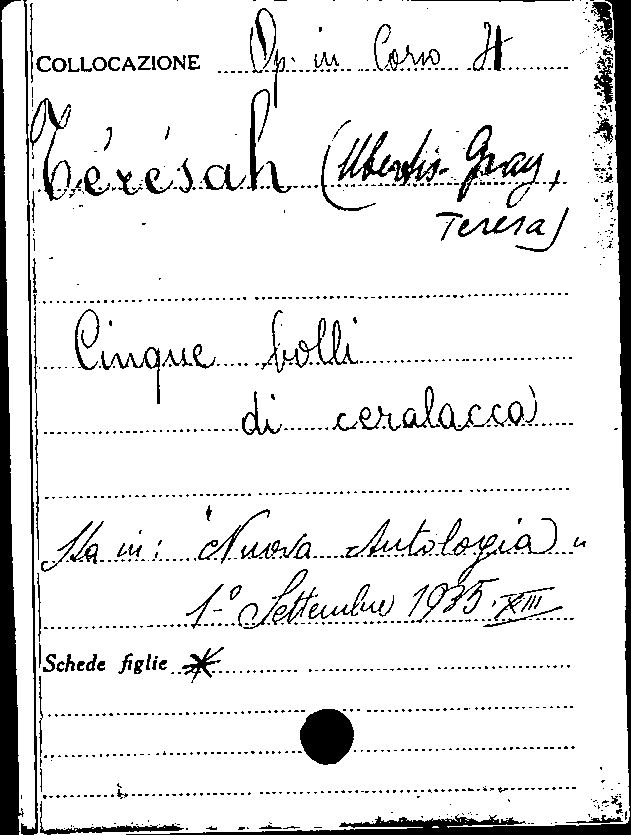 COLLOCAZIONE Op. in Corso It
Térésah (Ubertis-Gray,
Teresa)
Cinque bolli
di ceralacca
Sta in: "Nuova Antologia"
1º Settembre 1935. XIII
Schede figlie *